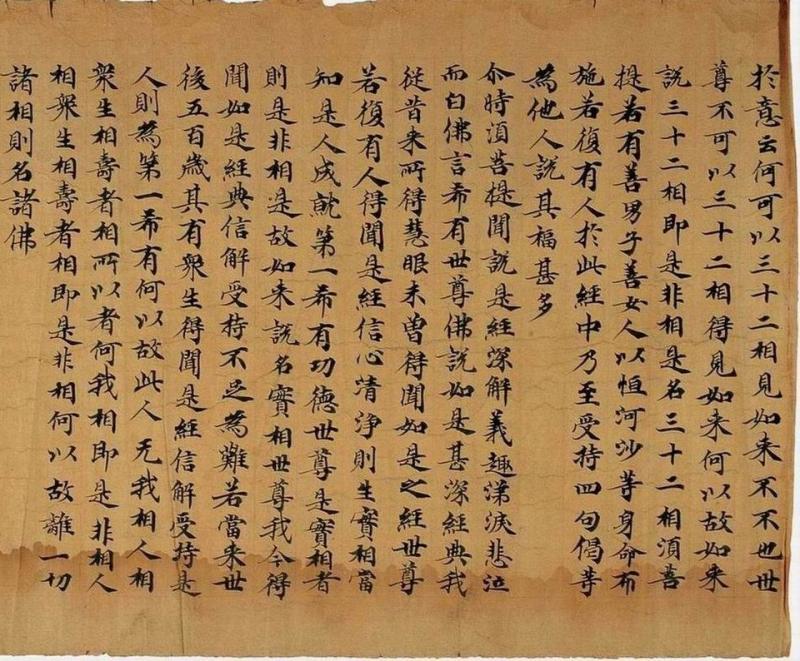 於意云何可以三十二相見如来不不也世
尊不可以三十二相得見如来何以故如来
說三十二相即是非相是名三十二相湏菩
提若有善男子善女人以恒河沙等身命布
施若復有人於此經中乃至受持四句偈等
為他人說其福甚多
尒時湏菩提聞說是經深解義趣涕淚悲泣
而白佛言希有世尊佛說如是甚深經典我
従昔来所得慧眼未曽得聞如是之經世尊
若復有人得聞是經信心清淨則生實相當
知是人成就第一希有功德世尊是實相者
則是非相是故如来說名實相世尊我今得
聞如是經典信解受持不足為難若當来世
後五百歲其有衆生得聞是經信解受持是
人則為第一希有何以故此人无我相人相
衆生相壽者相所以者何我相即是非相人
相衆生相壽者相即是非相何以故離一切
諸相則名諸佛